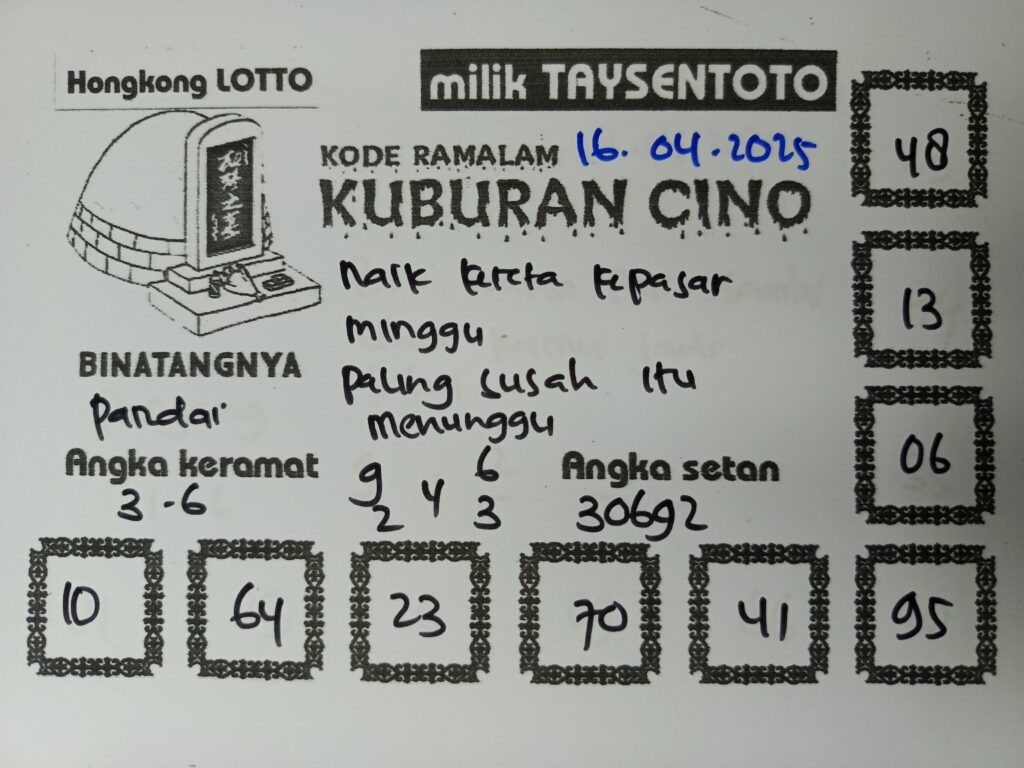 Hongkong LOTTO
milik TAYSENTOTO
KODE RAMALAM 16.04.2025
KUBURAN CINO
naik kereta kepasar
minggu
paling susah itu
menunggu
BINATANGNYA
pandai
Angka keramat
3-6
9 6
4
2 3
Angka setan
30692
48
13
06
10 64 23 70 41 95